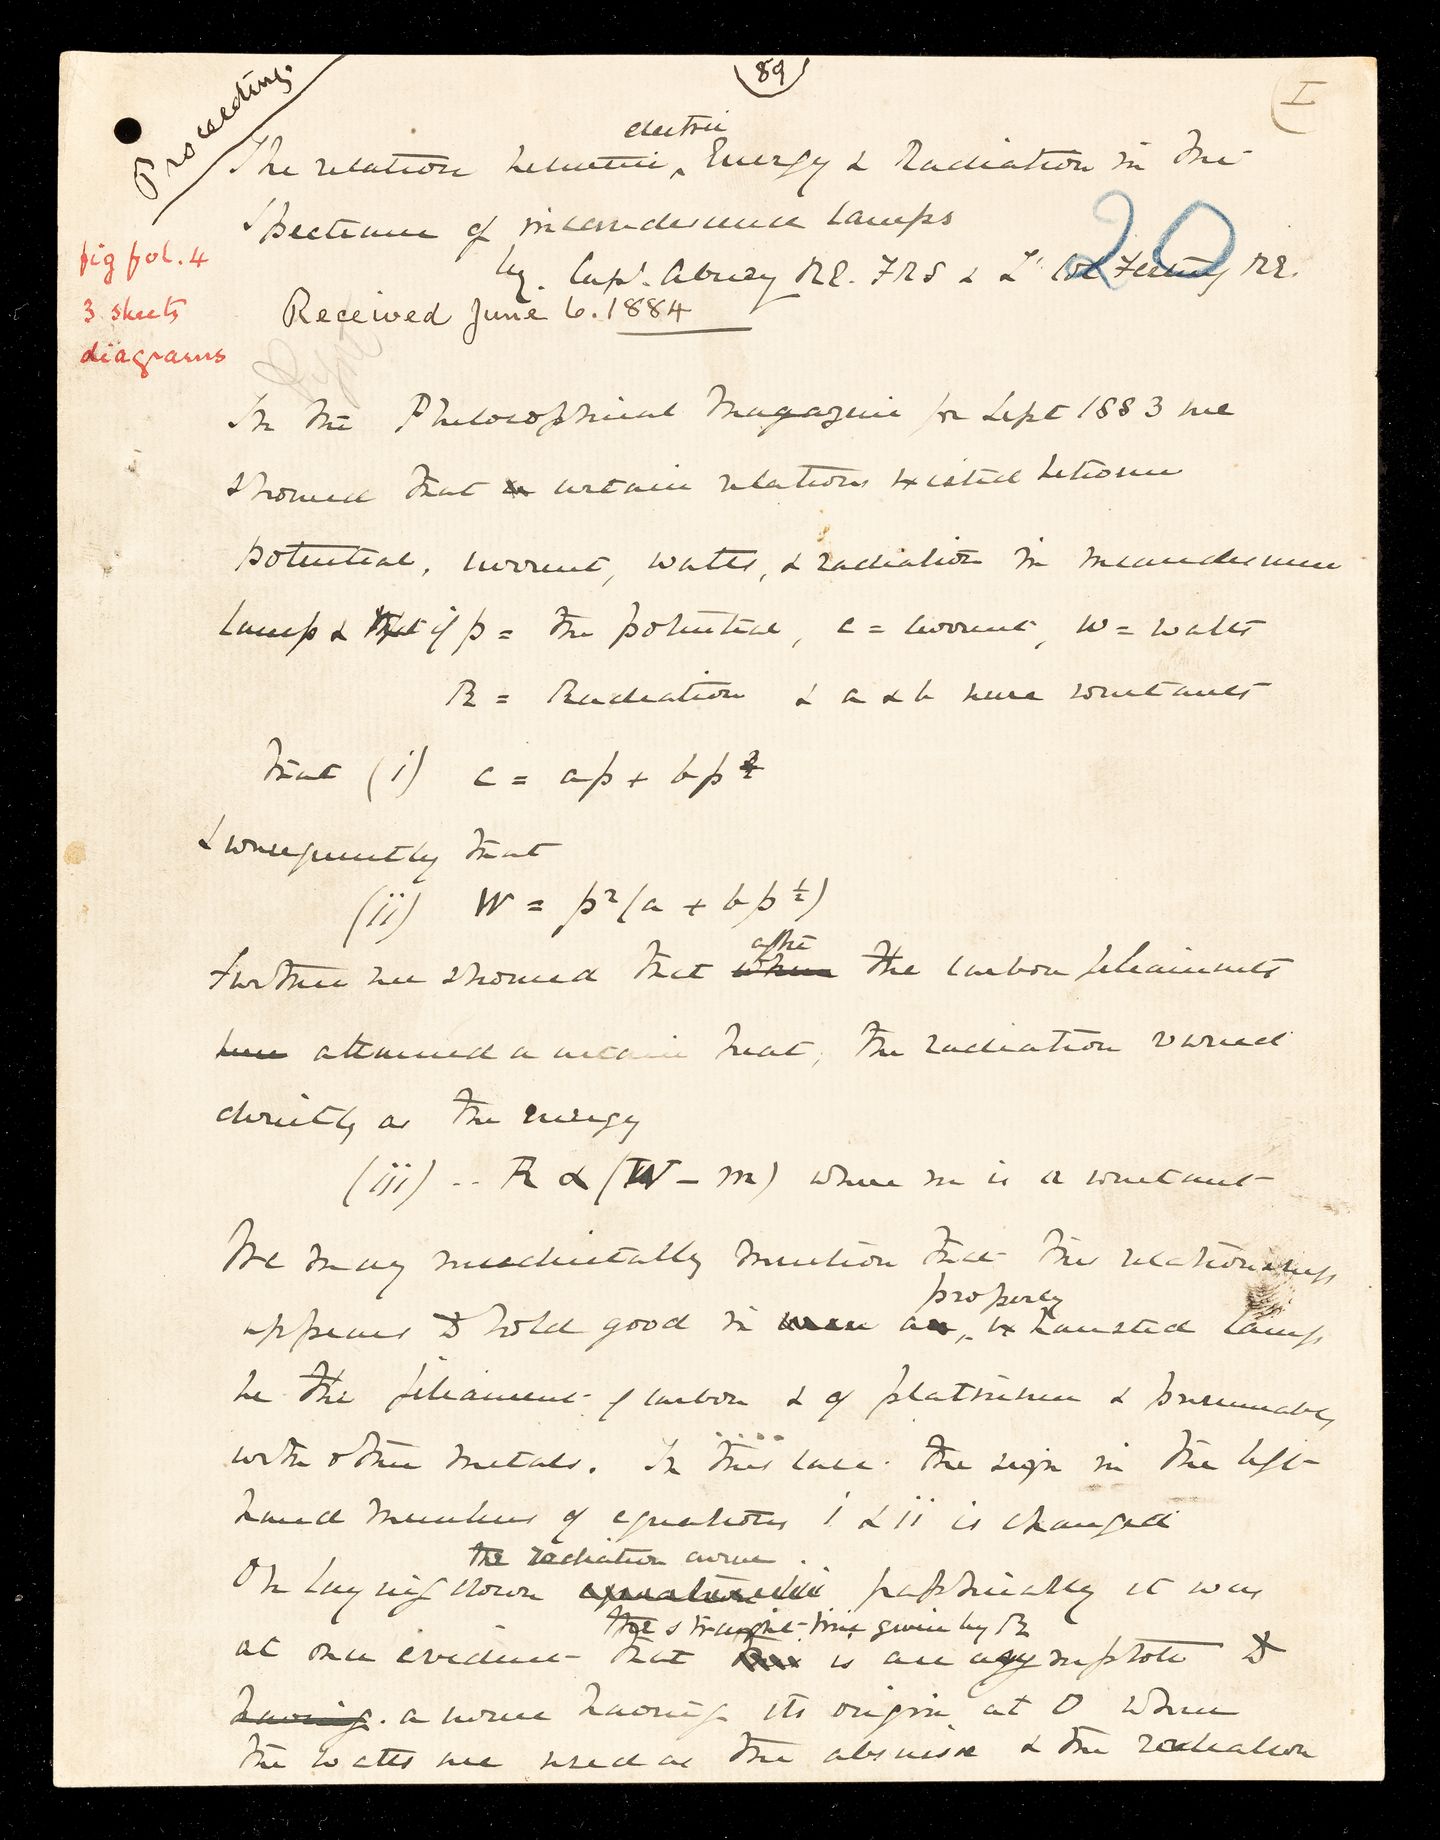 Proceedings.
89
I
electric
The relation between ‸ Energy & Radiation in the
Spectrum of incandescence lamps
20
by. Capt. Abney RE. FRS & Lt Col Festing RE.
fig fol. 4
3 sheets
diagrams
Received June 6. 1884
In the Philosophical Magazine for Sept 1883 we
showed that certain relations existed between
potential, current, watts, & radiation in incandescence
lamps & that if p = the potential, c = current, w = watts
R = Radiation & a & b were constants
that (i) c = ap + bp
& consequently that
(ii) W = p²(a + bp½)
after
Further we showed that when the carbon filaments
have attained a certain heat, the radiation varied
directly as the energy
(iii) .. R ∝ (W - m) where m is a constant
We may incidentally mention that this relationship
properly
appears to hold good in an ‸ exhausted lamp
be the filament of carbon & of platinum & presumably
with other metals. In this case the sign in the left
hand members of equations i & ii is changed
the radiation curve
On laying down graphically it was
the straight line given by R
at once evident that this is an asymptote to
having. a curve having its origin at O when
the watts are used as the abscissæ & the radiation